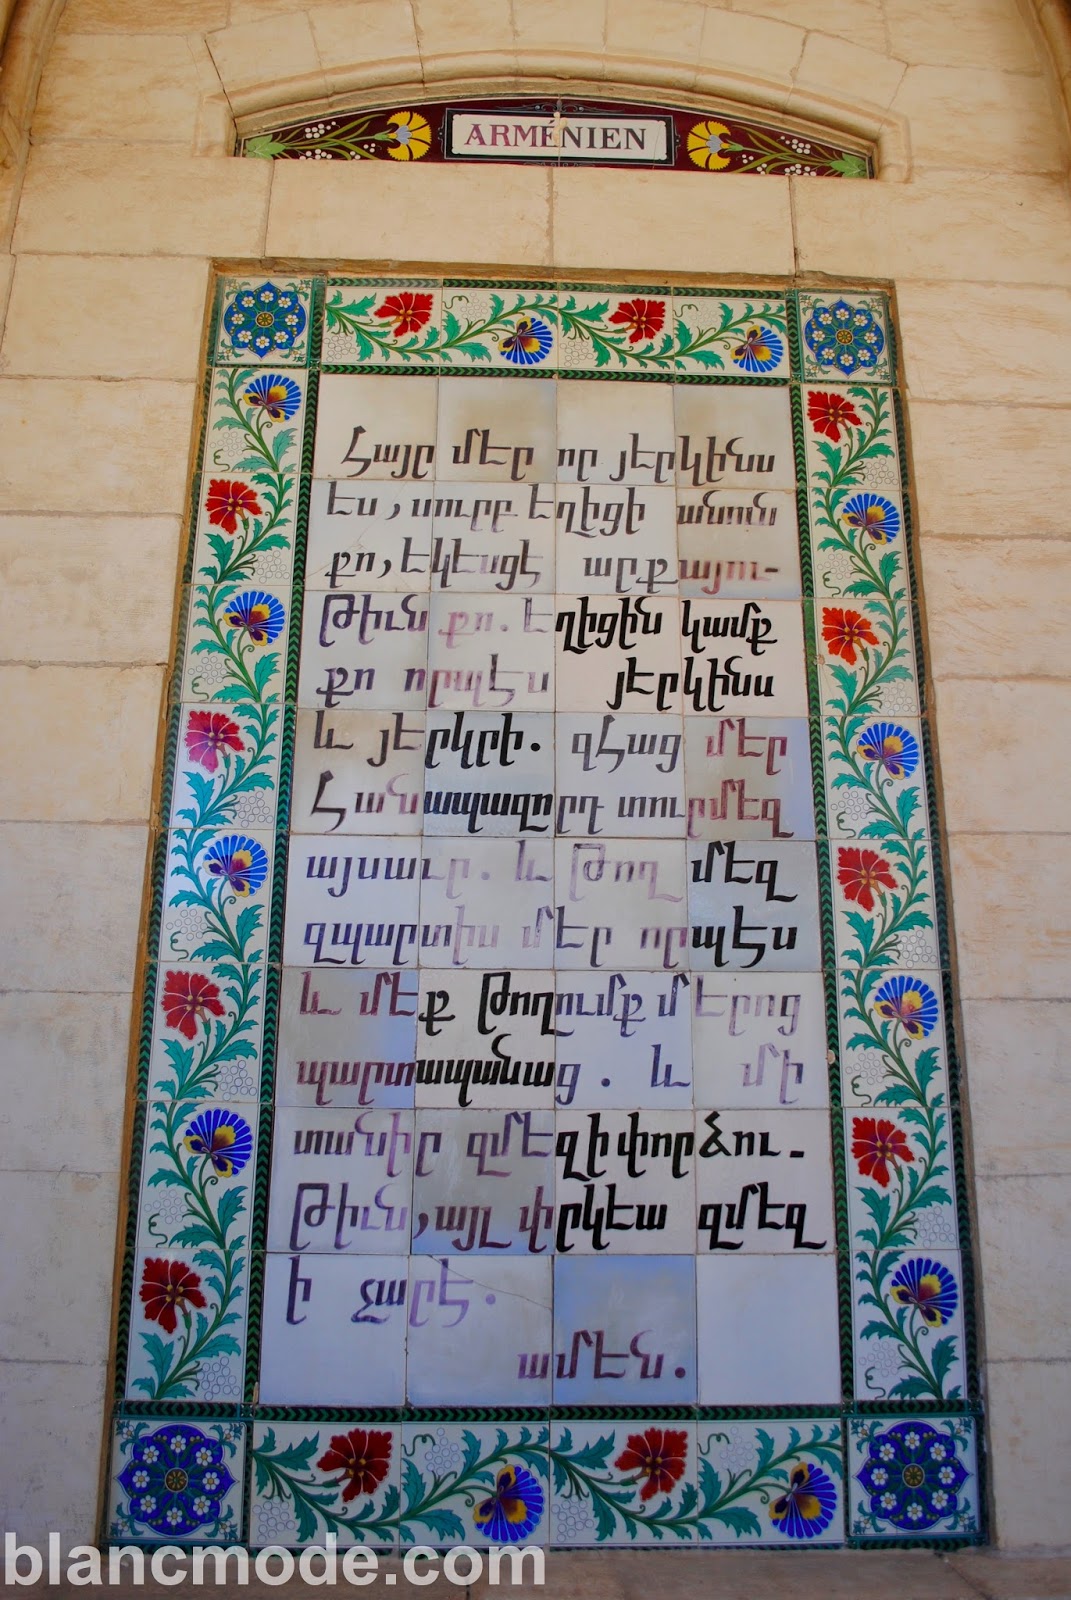 ARMÉNIEN
Հայր մեր որ յերկինս
ես, սուրբ եղիցի անուն
քո, եկեսցէ արքայու-
թիւն քո. եղիցին կամք
քո որպէս յերկինս
և յերկրի. զՀաց մեր
Հանապազորդ տուր մեզ
այսաւր. և թող մեզ
զպարտիս մեր որպէս
և մեք թողումք մերոց
պարտապանաց. և մի
տանիր զմեզ ի փորձու-
թիւն, այլ փրկեա զմեզ
ի չարէ.
ամէն.
blancmode.com